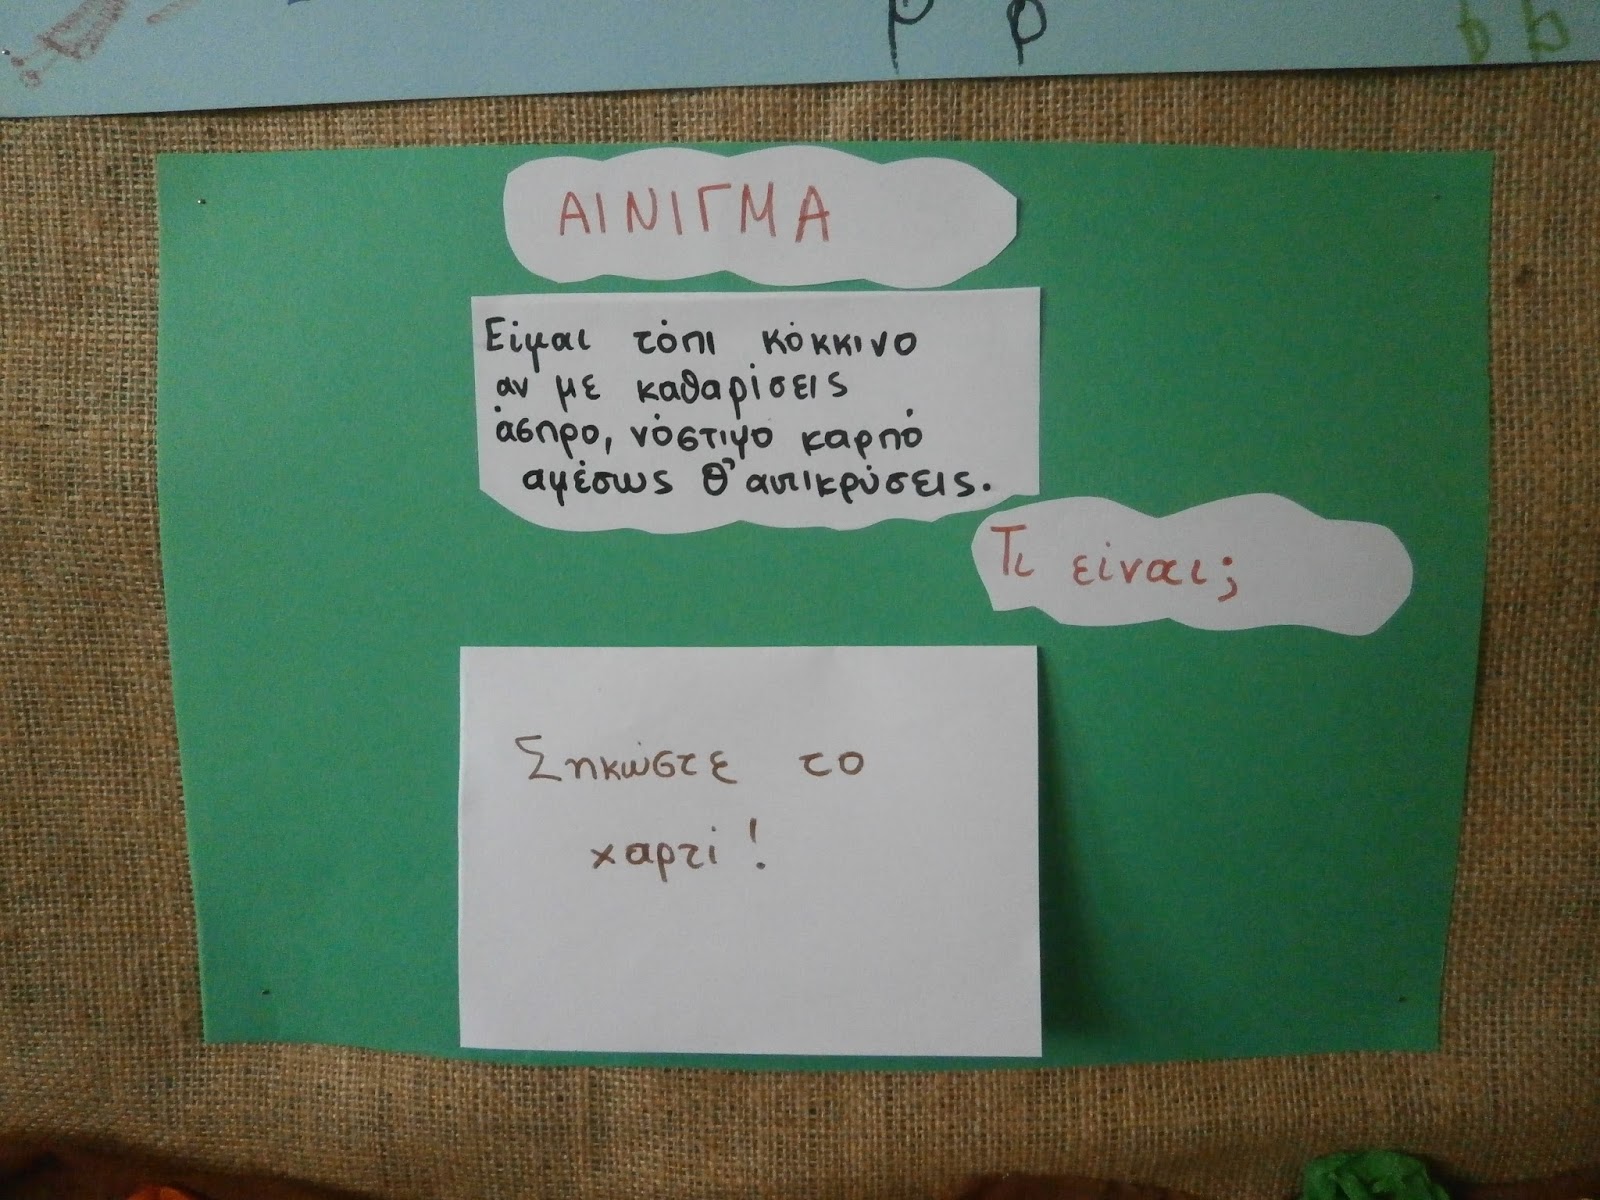 ρ ρ
ΑΙΝΙΓΜΑ
Είμαι τόπι κόκκινο
αν με καθαρίσεις
άσπρο, νόστιμο καρπό
αμέσως θ' αντικρύσεις.
Τι είναι;
Σηκώστε το
χαρτί!